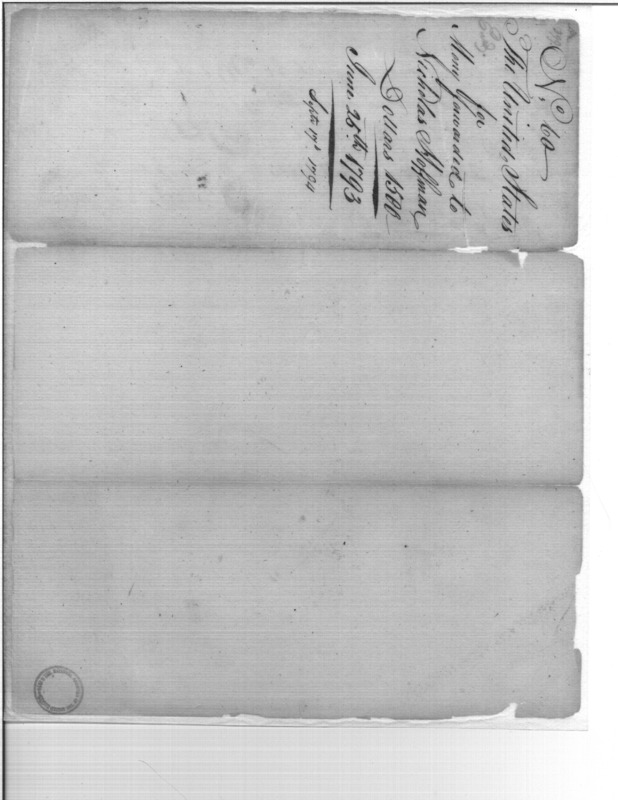 No. 60
The United States
for
Mony forwarded to
Nicholas Hoffman
Dollars 1500
June 25th 1793
Septr 17th 1794